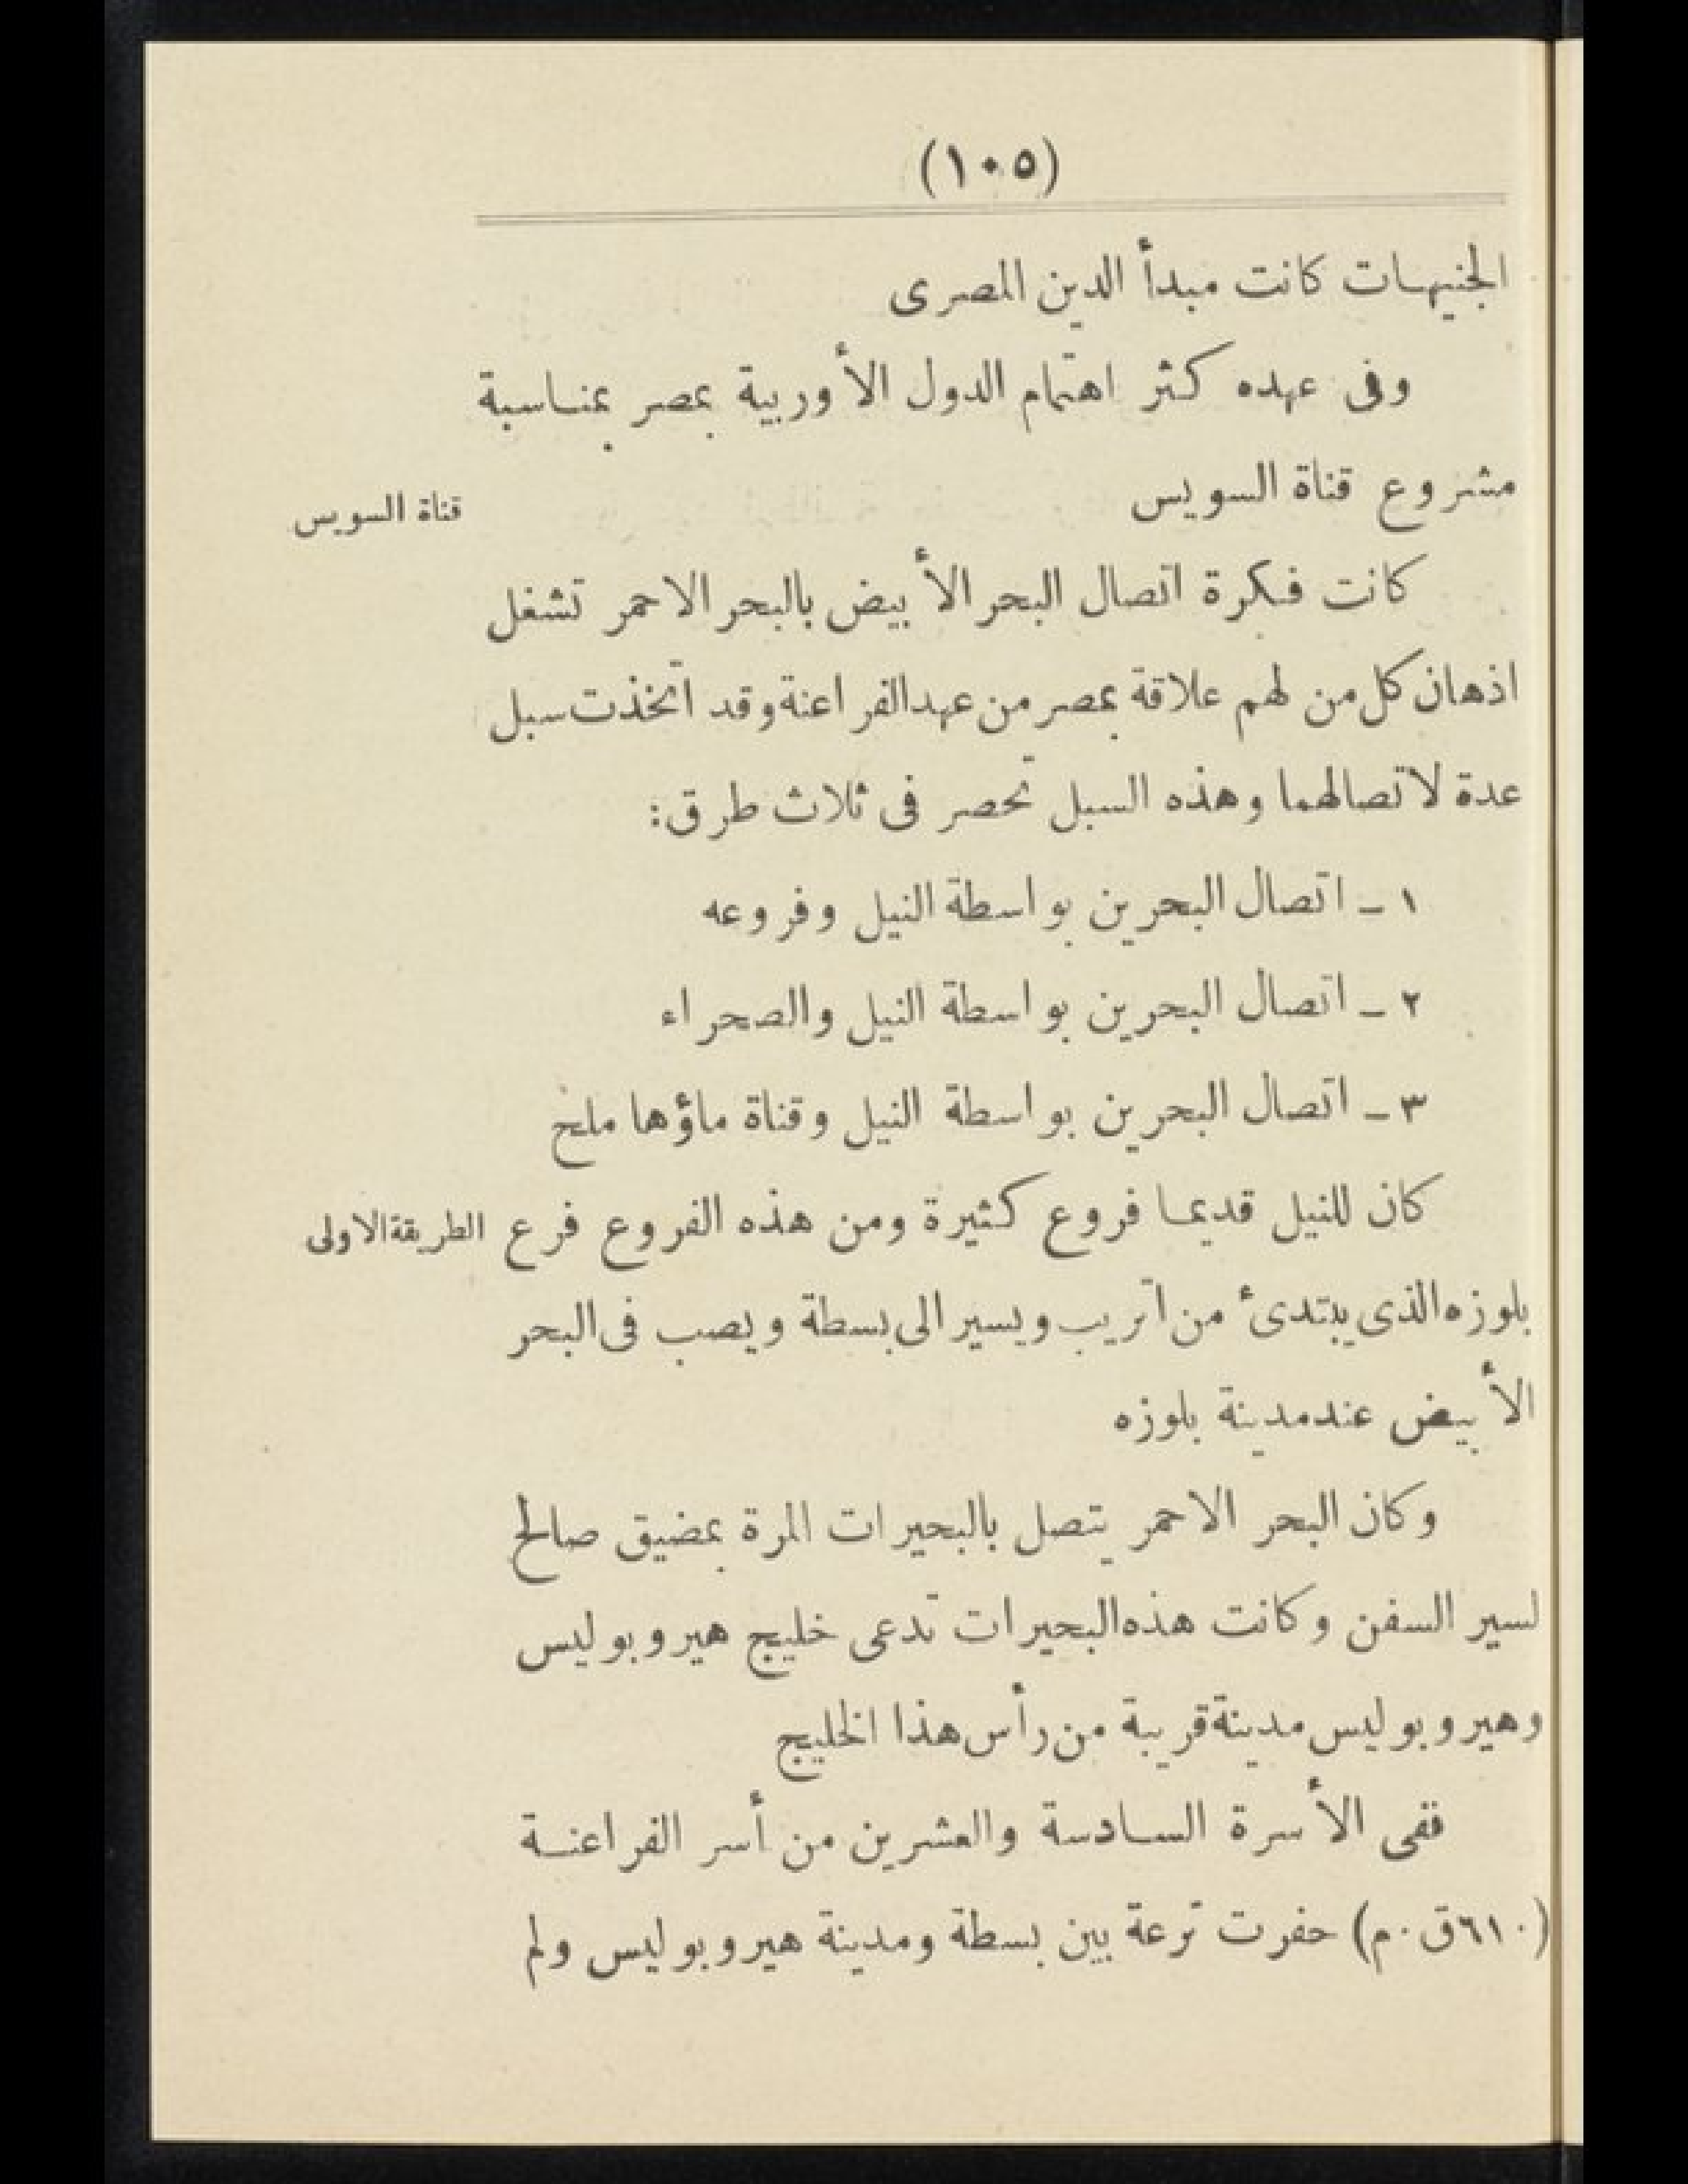 (١٠٥)
الجنيهات كانت مبدأ الدين المصرى
وفى عهده كثر اهتمام الدول الأوربية بمصر بمناسبة
مشروع قناة السويس
قناة السويس
كانت فكرة اتصال البحر الأبيض بالبحر الاحمر تشغل
اذهان كل من لهم علاقة بمصر من عهد الفراعنة وقد اتخذت سبل
عدة لاتصالهما وهذه السبل تحصر فى ثلاث طرق:
١ ــ اتصال البحرين بواسطة النيل وفروعه
٢ ــ اتصال البحرين بواسطة النيل والصحراء
٣ ــ اتصال البحرين بواسطة النيل وقناة ماؤها ملح
كان للنيل قديما فروع كثيرة ومن هذه الفروع فرع
الطريقة الاولى
بلوزه الذى يبتدئ من اتريب ويسير الى بسطة ويصب فى البحر
الأبيض عند مدينة بلوزه
وكان البحر الاحمر يتصل بالبحيرات المرة بمضيق صالح
لسير السفن وكانت هذه البحيرات تدعى خليج هيروبوليس
وهيروبوليس مدينة قريبة من رأس هذا الخليج
ففى الأسرة السادسة والعشرين من أسر الفراعنة
(٦١٠ق.م) حفرت ترعة بين بسطة ومدينة هيروبوليس ولم